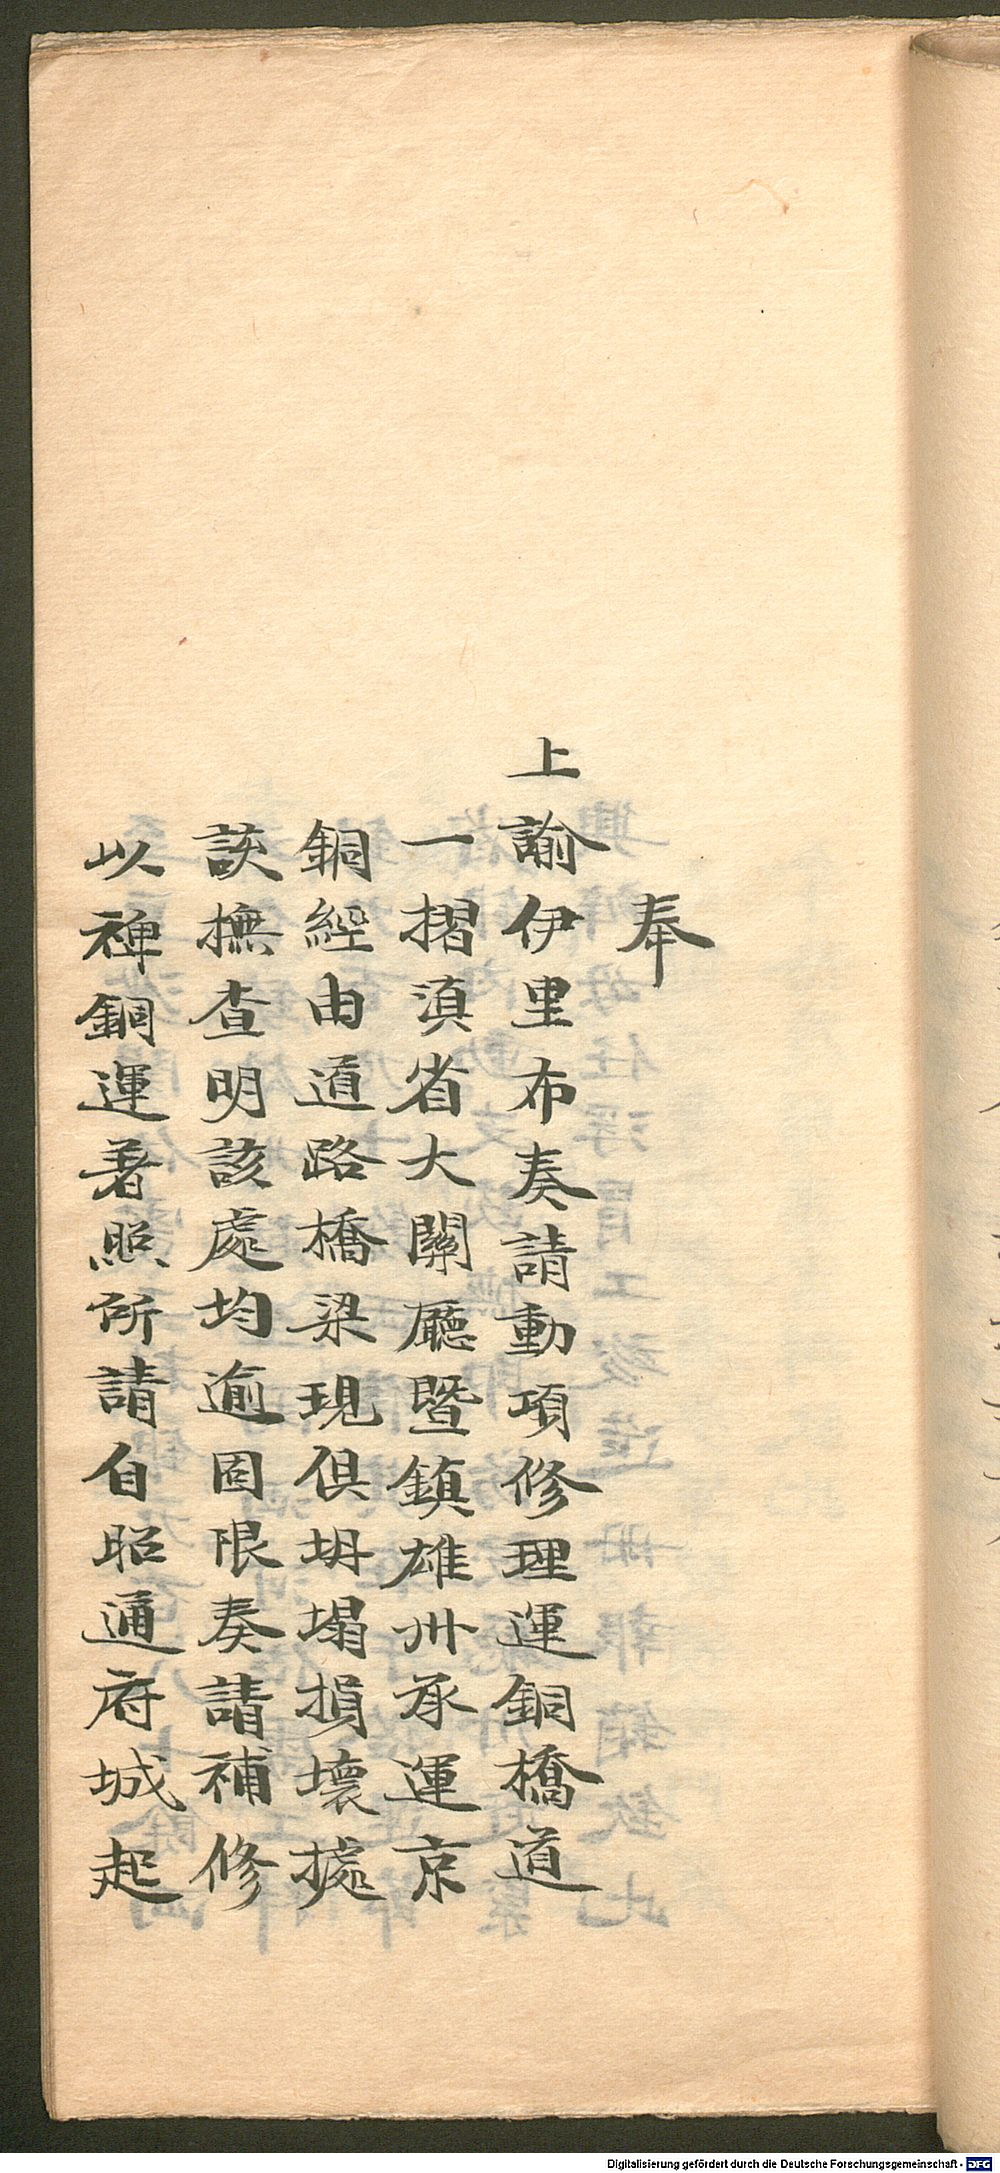 奉
上諭伊里布奏請動項修理運銅橋道
一摺滇省大關廳暨鎮雄州承運京
銅經由道路橋梁現俱坍塌損壞據
該撫查明該處均逾固限奏請補修
以裨銅運著照所請自昭通府城起
Digitalisierung gefördert durch die Deutsche Forschungsgemeinschaft - DFG